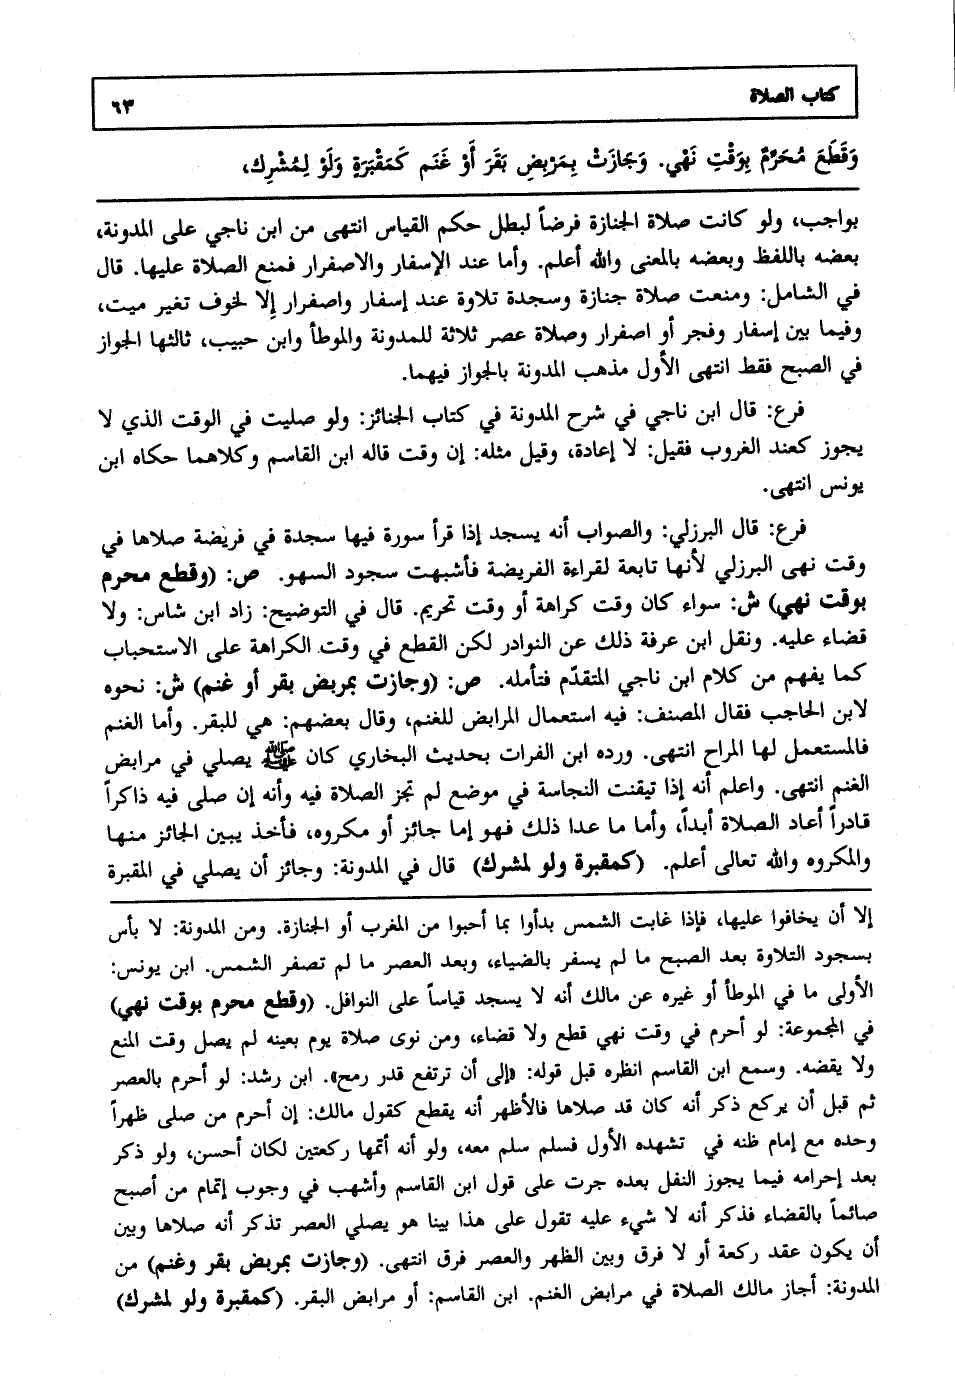 كتاب الصلاة ٦٣
وَقَطَعَ مُحَرَّمٌ بِوَقْتِ نَهْيٍ. وَجَازَتْ بِمَرْبِضِ بَقَرَ أَوْ غَنَم كَمَقْبَرَةٍ وَلَوْ لِمُشْرِك،
بواجب، ولو كانت صلاة الجنازة فرضاً لبطل حكم القياس انتهى من ابن ناجي على المدونة،
بعضه باللفظ وبعضه بالمعنى والله أعلم. وأما عند الإسفار والاصفرار فمنع الصلاة عليها. قال
في الشامل: ومنعت صلاة جنازة وسجدة تلاوة عند إسفار واصفرار إلا لخوف تغير ميت،
وفيما بين إسفار وفجر أو اصفرار وصلاة عصر ثلاثة للمدونة والموطأ وابن حبيب، ثالثها الجواز
في الصبح فقط انتهى الأول مذهب المدونة بالجواز فيهما.
فرع: قال ابن ناجي في شرح المدونة في كتاب الجنائز: ولو صليت في الوقت الذي لا
يجوز كعند الغروب فقيل: لا إعادة، وقيل مثله: إن وقت قاله ابن القاسم وكلاهما حكاه ابن
يونس انتهى.
فرع: قال البرزلي: والصواب أنه يسجد إذا قرأ سورة فيها سجدة في فريضة صلاها في
وقت نهى البرزلي لأنها تابعة لقراءة الفريضة فأشبهت سجود السهو. ص: (وقطع محرم
بوقت نهي) ش: سواء كان وقت كراهة أو وقت تحريم. قال في التوضيح: زاد ابن شاس: ولا
قضاء عليه. ونقل ابن عرفة ذلك عن النوادر لكن القطع في وقت الكراهة على الاستحباب
كما يفهم من كلام ابن ناجي المتقدّم فتأمله. ص: (وجازت بمربض بقر أو غنم) ش: نحوه
لابن الحاجب فقال المصنف: فيه استعمال المرابض للغنم، وقال بعضهم: هي للبقر. وأما الغنم
فالمستعمل لها المراح انتهى. ورده ابن الفرات بحديث البخاري كان ﷺ يصلي في مرابض
الغنم انتهى. واعلم أنه إذا تيقنت النجاسة في موضع لم تجز الصلاة فيه وأنه إن صلى فيه ذاكراً
قادراً أعاد الصلاة أبداً، وأما ما عدا ذلك فهو إما جائز أو مكروه، فأخذ يبين الجائز منها
والمكروه والله تعالى أعلم. (كمقبرة ولو لمشرك) قال في المدونة: وجائز أن يصلي في المقبرة
إلا أن يخافوا عليها، فإذا غابت الشمس بدأوا بما أحبوا من المغرب أو الجنازة. ومن المدونة: لا بأس
بسجود التلاوة بعد الصبح ما لم يسفر بالضياء، وبعد العصر ما لم تصفر الشمس. ابن يونس:
الأولى ما في الموطأ أو غيره عن مالك أنه لا يسجد قياساً على النوافل. (وقطع محرم بوقت نهي)
في المجموعة: لو أحرم في وقت نهي قطع ولا قضاء، ومن نوى صلاة يوم بعينه لم يصل وقت المنع
ولا يقضه. وسمع ابن القاسم انظره قبل قوله: «إلى أن ترتفع قدر رمح». ابن رشد: لو أحرم بالعصر
ثم قبل أن يركع ذكر أنه كان قد صلاها فالأظهر أنه يقطع كقول مالك: إن أحرم من صلى ظهراً
وحده مع إمام ظنه في تشهده الأول فسلم سلم معه، ولو أنه أتمها ركعتين لكان أحسن، ولو ذكر
بعد إحرامه فيما يجوز النفل بعده جرت على قول ابن القاسم وأشهب في وجوب إتمام من أصبح
صائماً بالقضاء فذكر أنه لا شيء عليه تقول على هذا بينا هو يصلي العصر تذكر أنه صلاها وبين
أن يكون عقد ركعة أو لا فرق وبين الظهر والعصر فرق انتهى. (وجازت بمربض بقر وغنم) من
المدونة: أجاز مالك الصلاة في مرابض الغنم. ابن القاسم: أو مرابض البقر. (كمقبرة ولو لمشرك)